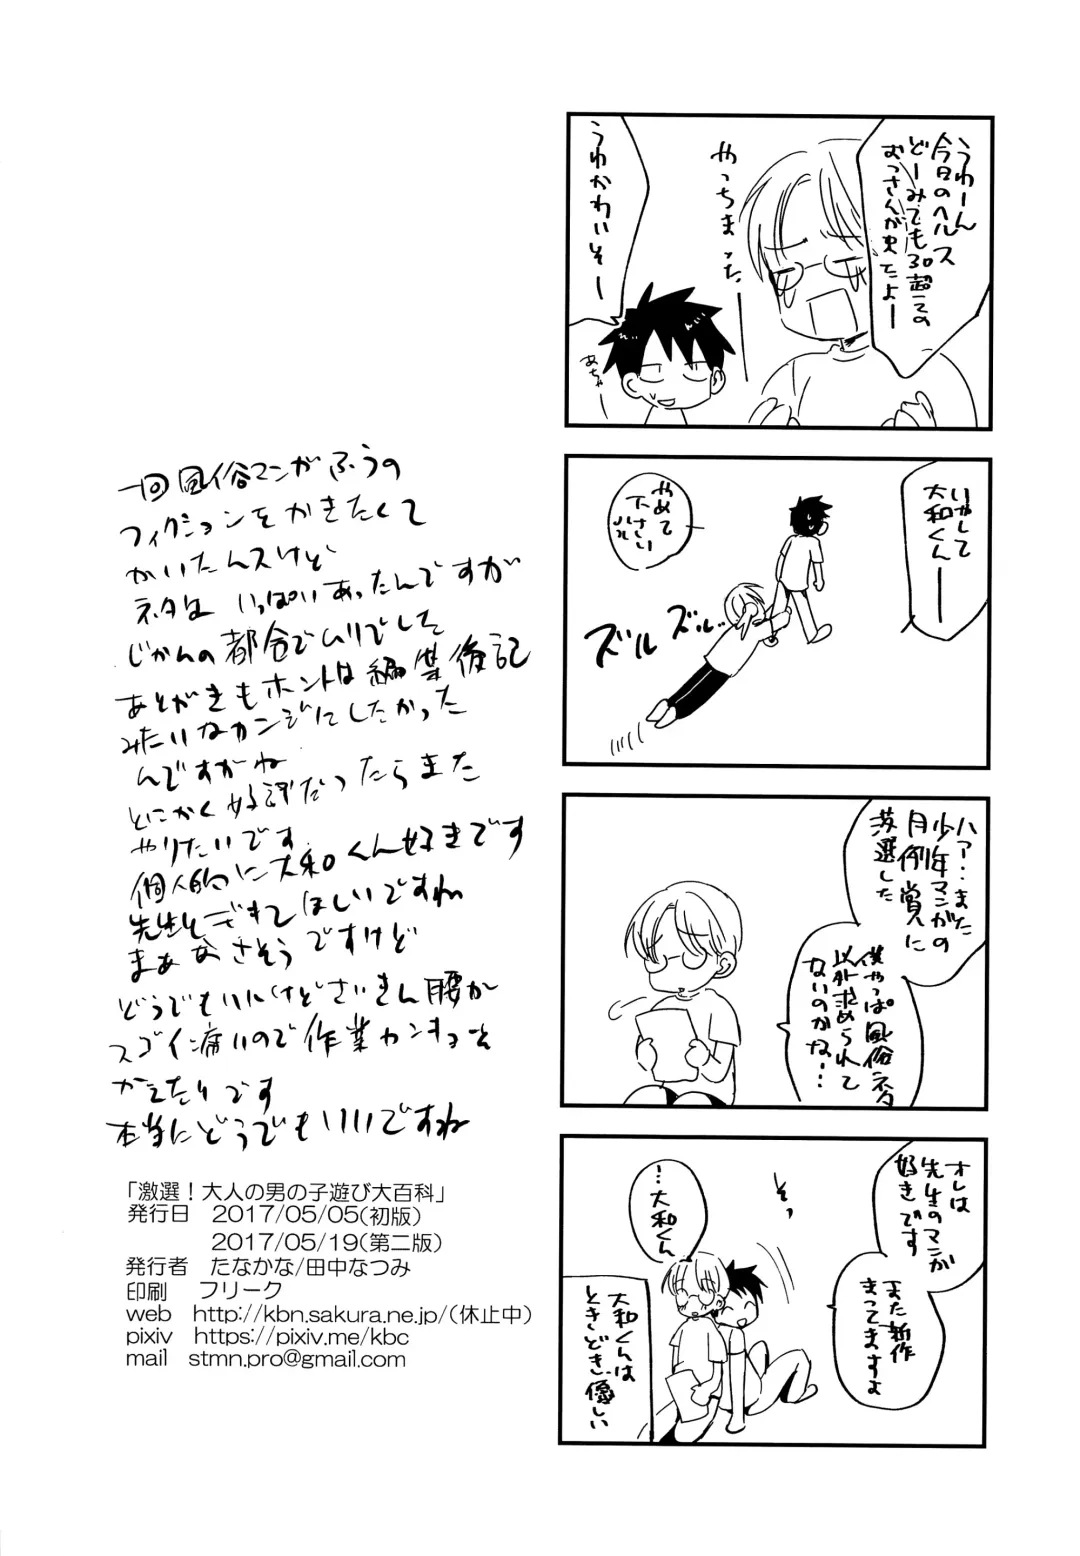 うわーん
今日のヘルス
どーみても30超ての
おっさんが来たよー
やっちまったー
うわかわいそー
あちゃー
いやして
大和くんー
やめて
下さい
ズル ズル
ハァ…また
少年マンガの
月例賞に
落選した
僕やっぱ風俗ネタ
以外求められて
ないのかな…
オレは
先生のマンガ
好きです
また新作
まってますよ
そっ
…大和くん
大和くんは
ときどき優しい
一回風俗マンガふうの
フィクションをかきたくて
かいたんスけど
ネタは いっぱいあったんですが
じかんの都合でムリでした
あとがきもホントは編集後記
みたいなカンジにしたかった
んですがね
とにかく好評だったらまた
やりたいです
個人的に大和くん好きです
先生とできてほしいですね
まあなさそうですけど
どうでもいいけどさいきん腰が
スゴイ痛いので作業カンキョーを
かえたいです
本当にどうでもいいですね
「激選！大人の男の子遊び大百科」
発行日 2017/05/05(初版)
2017/05/19(第二版)
発行者 たなかな/田中なつみ
印刷 フリーク
web http://kbn.sakura.ne.jp/(休止中)
pixiv https://pixiv.me/kbc
mail stmn.pro@gmail.com